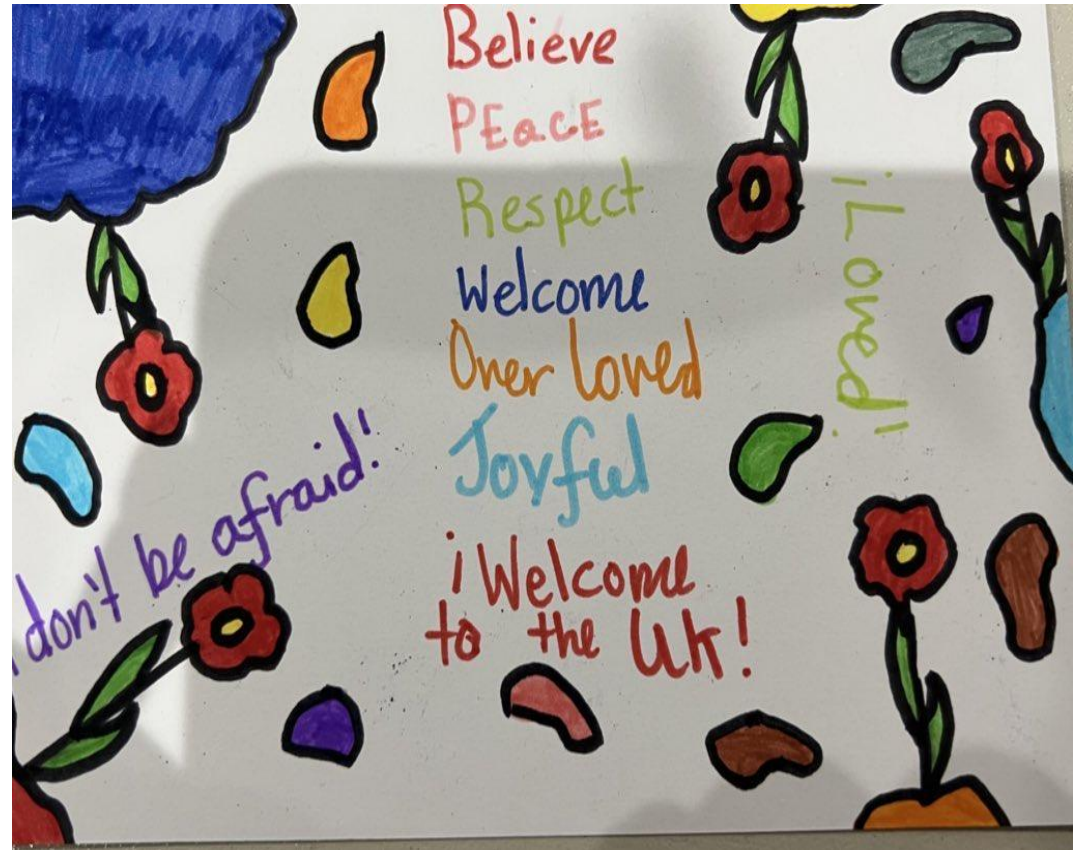 Believe
PEacE
Respect
Welcome
Over loved
Joyful
¡Welcome
to the UK!
¡Loved!
don't be afraid!